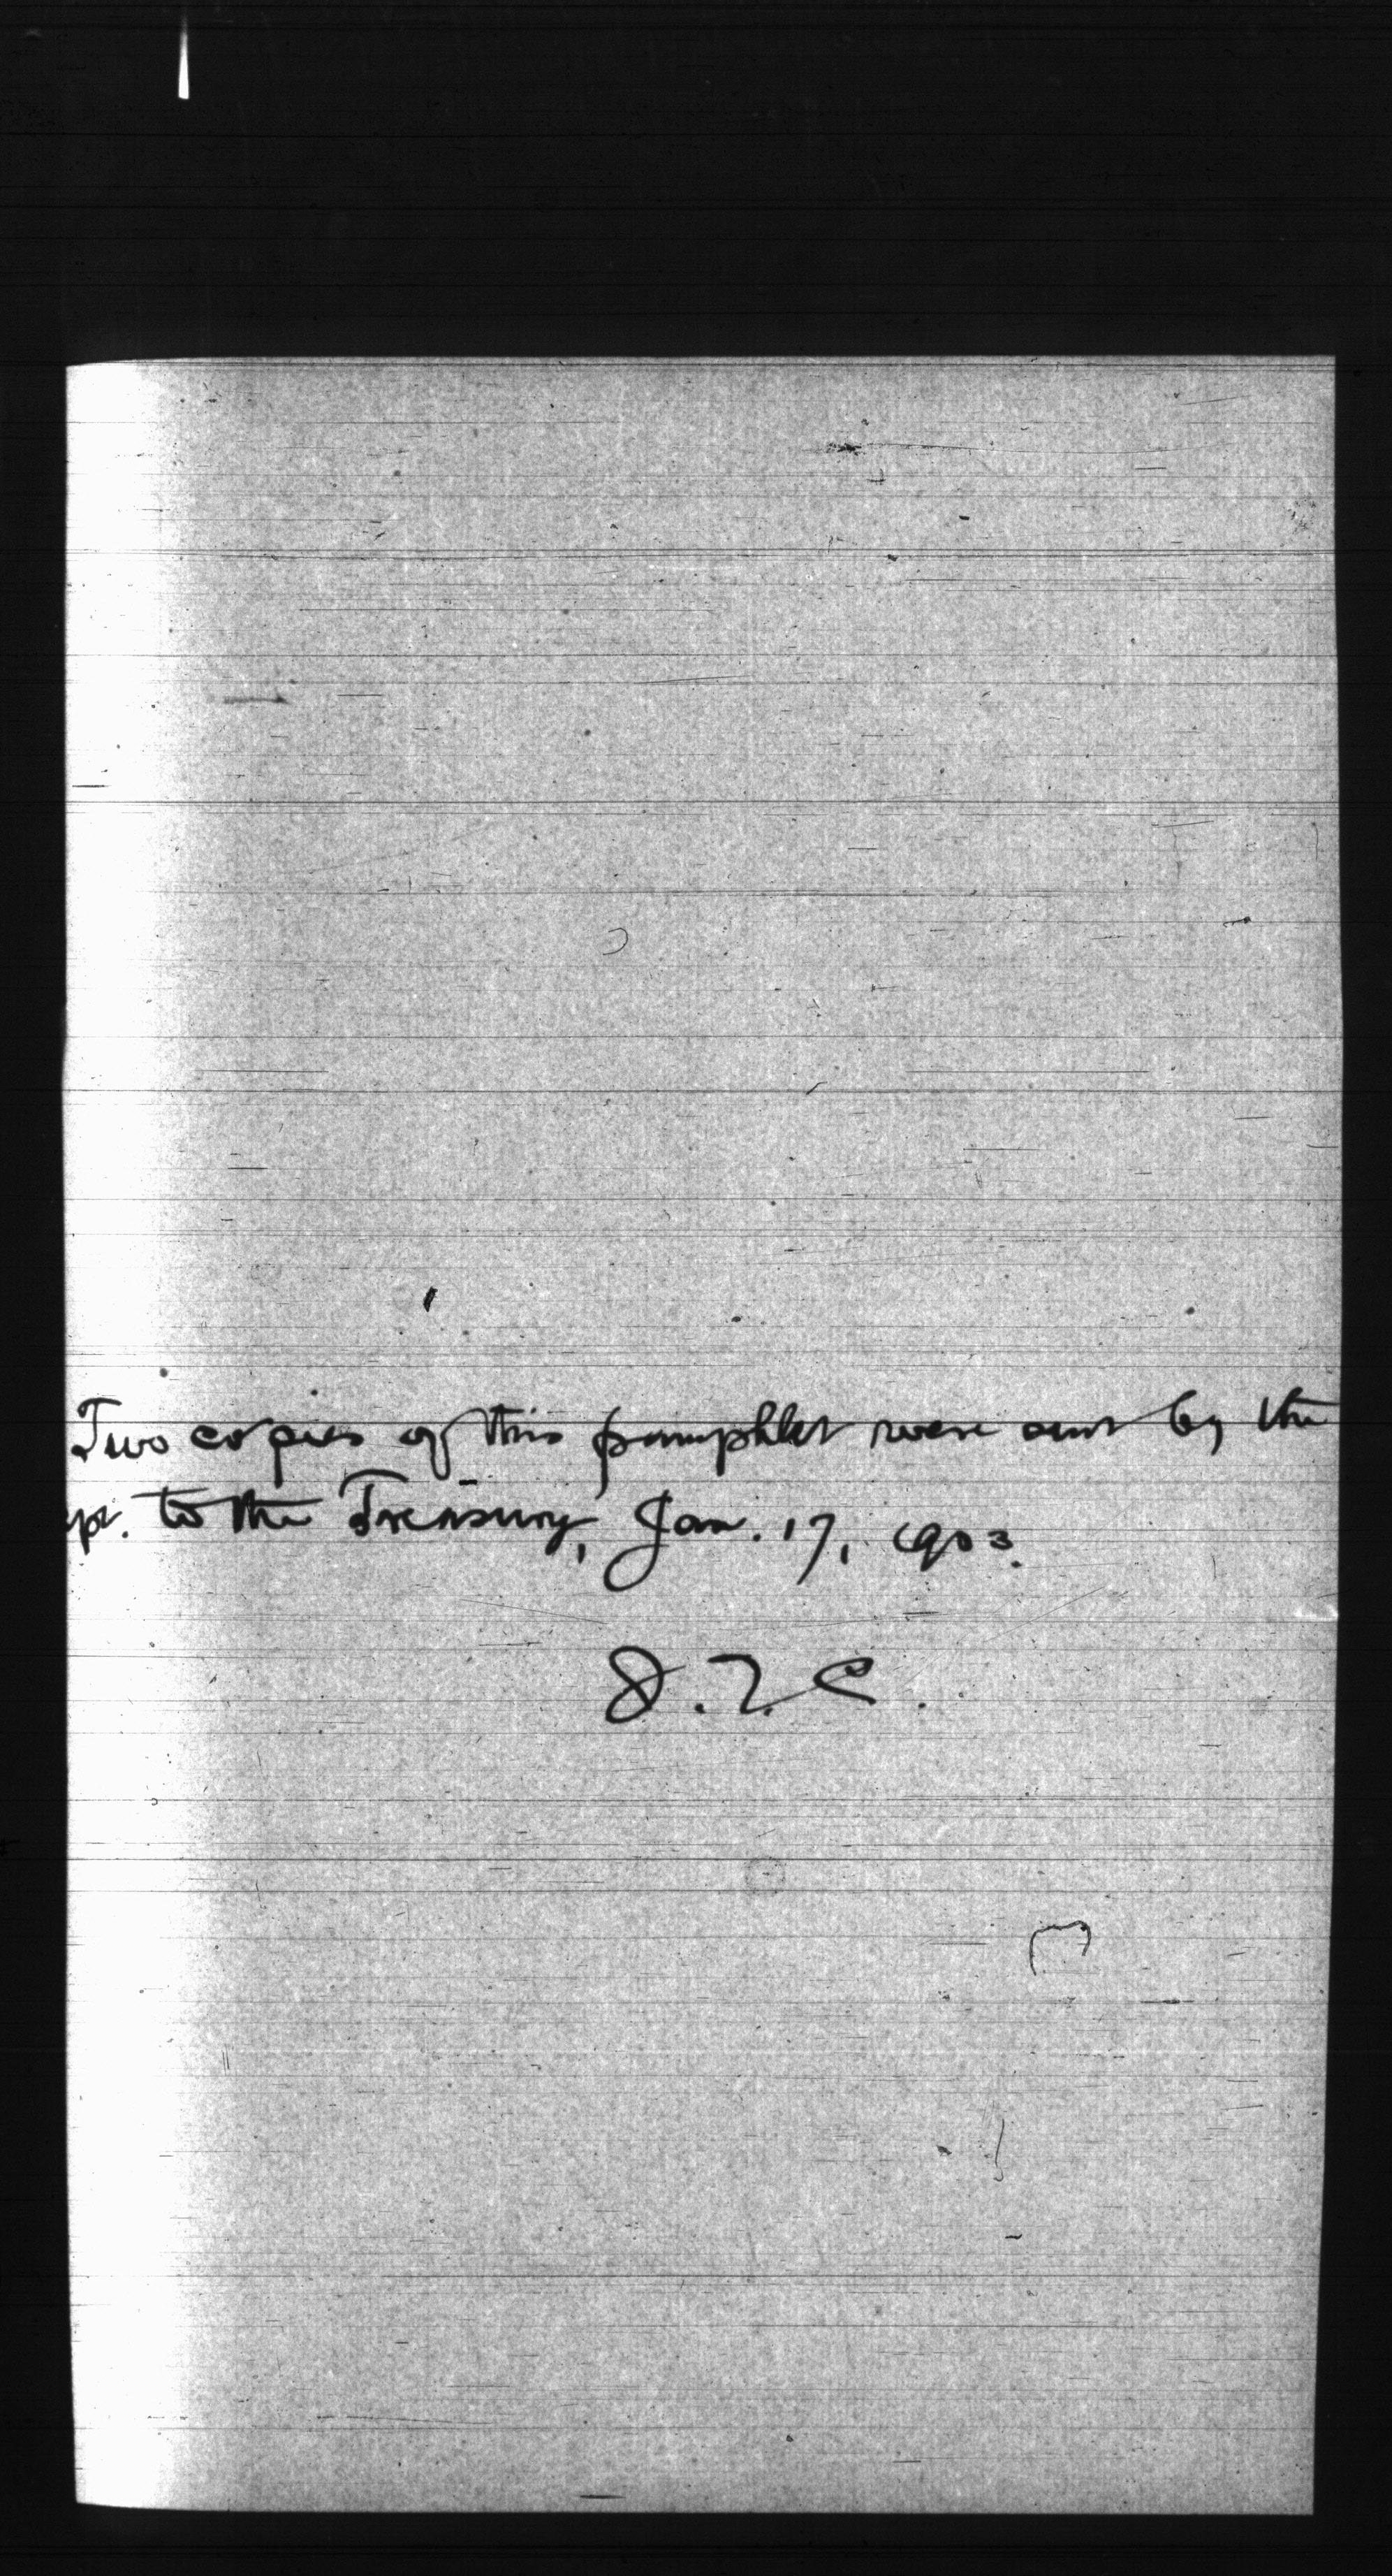 Two copies of this pamphlet were sent by the
pt. to the Treasury, Jan. 17, 1903.